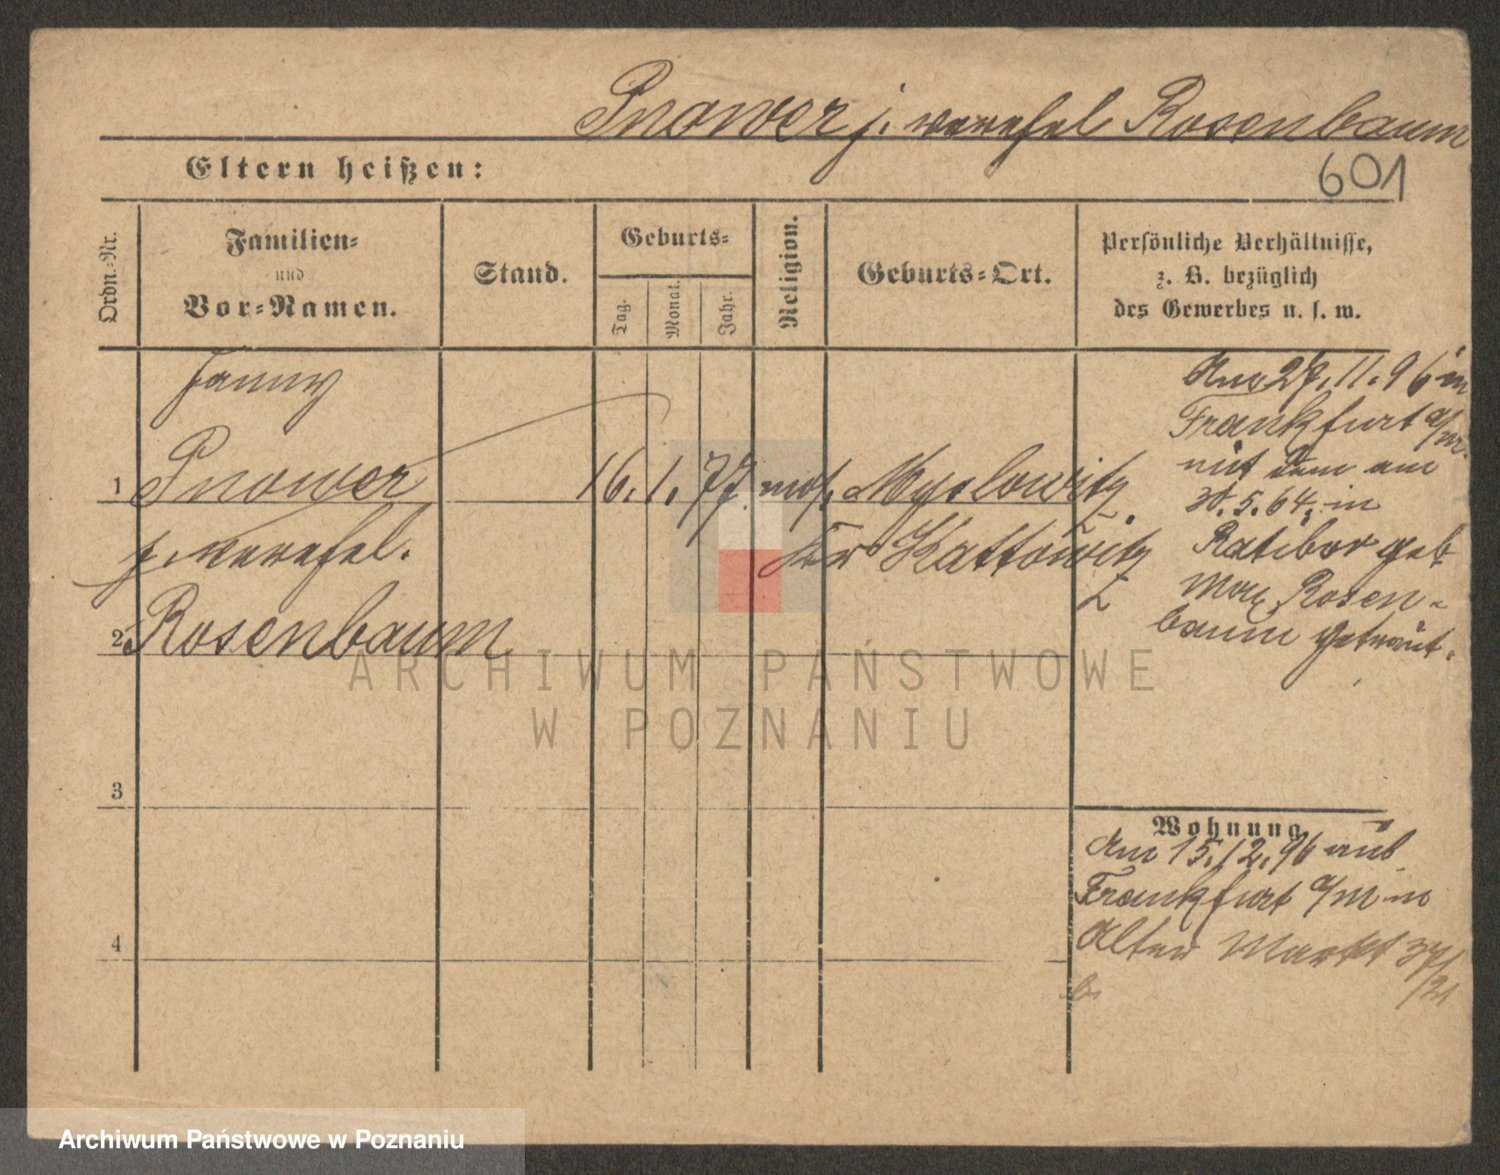 Pnower j. verehel. Rosenbaum
Eltern heißen:
601
Ordn.-Nr.
Familien-
und
Vor-Namen.
Stand.
Geburts-
Tag.
Monat.
Jahr.
Religion.
Geburts-Ort.
Persönliche Verhältnisse,
z. B. bezüglich
des Gewerbes u. s. w.
Fanny
1 Pnower 16. 1. 77 mos. Myslowitz
j. verehel. Kr Kattowitz
2 Rosenbaum
3
4
Am 27.11.96 in
Frankfurt a/m
mit dem am
30.5.64 in
Ratibor geb
Max Rosen-
baum getraut.
Wohnung
Am 15.12.96 aus
Frankfurt a/M in
Alter Markt 37/
ARCHIWUM PAŃSTWOWE
W POZNANIU
Archiwum Państwowe w Poznaniu